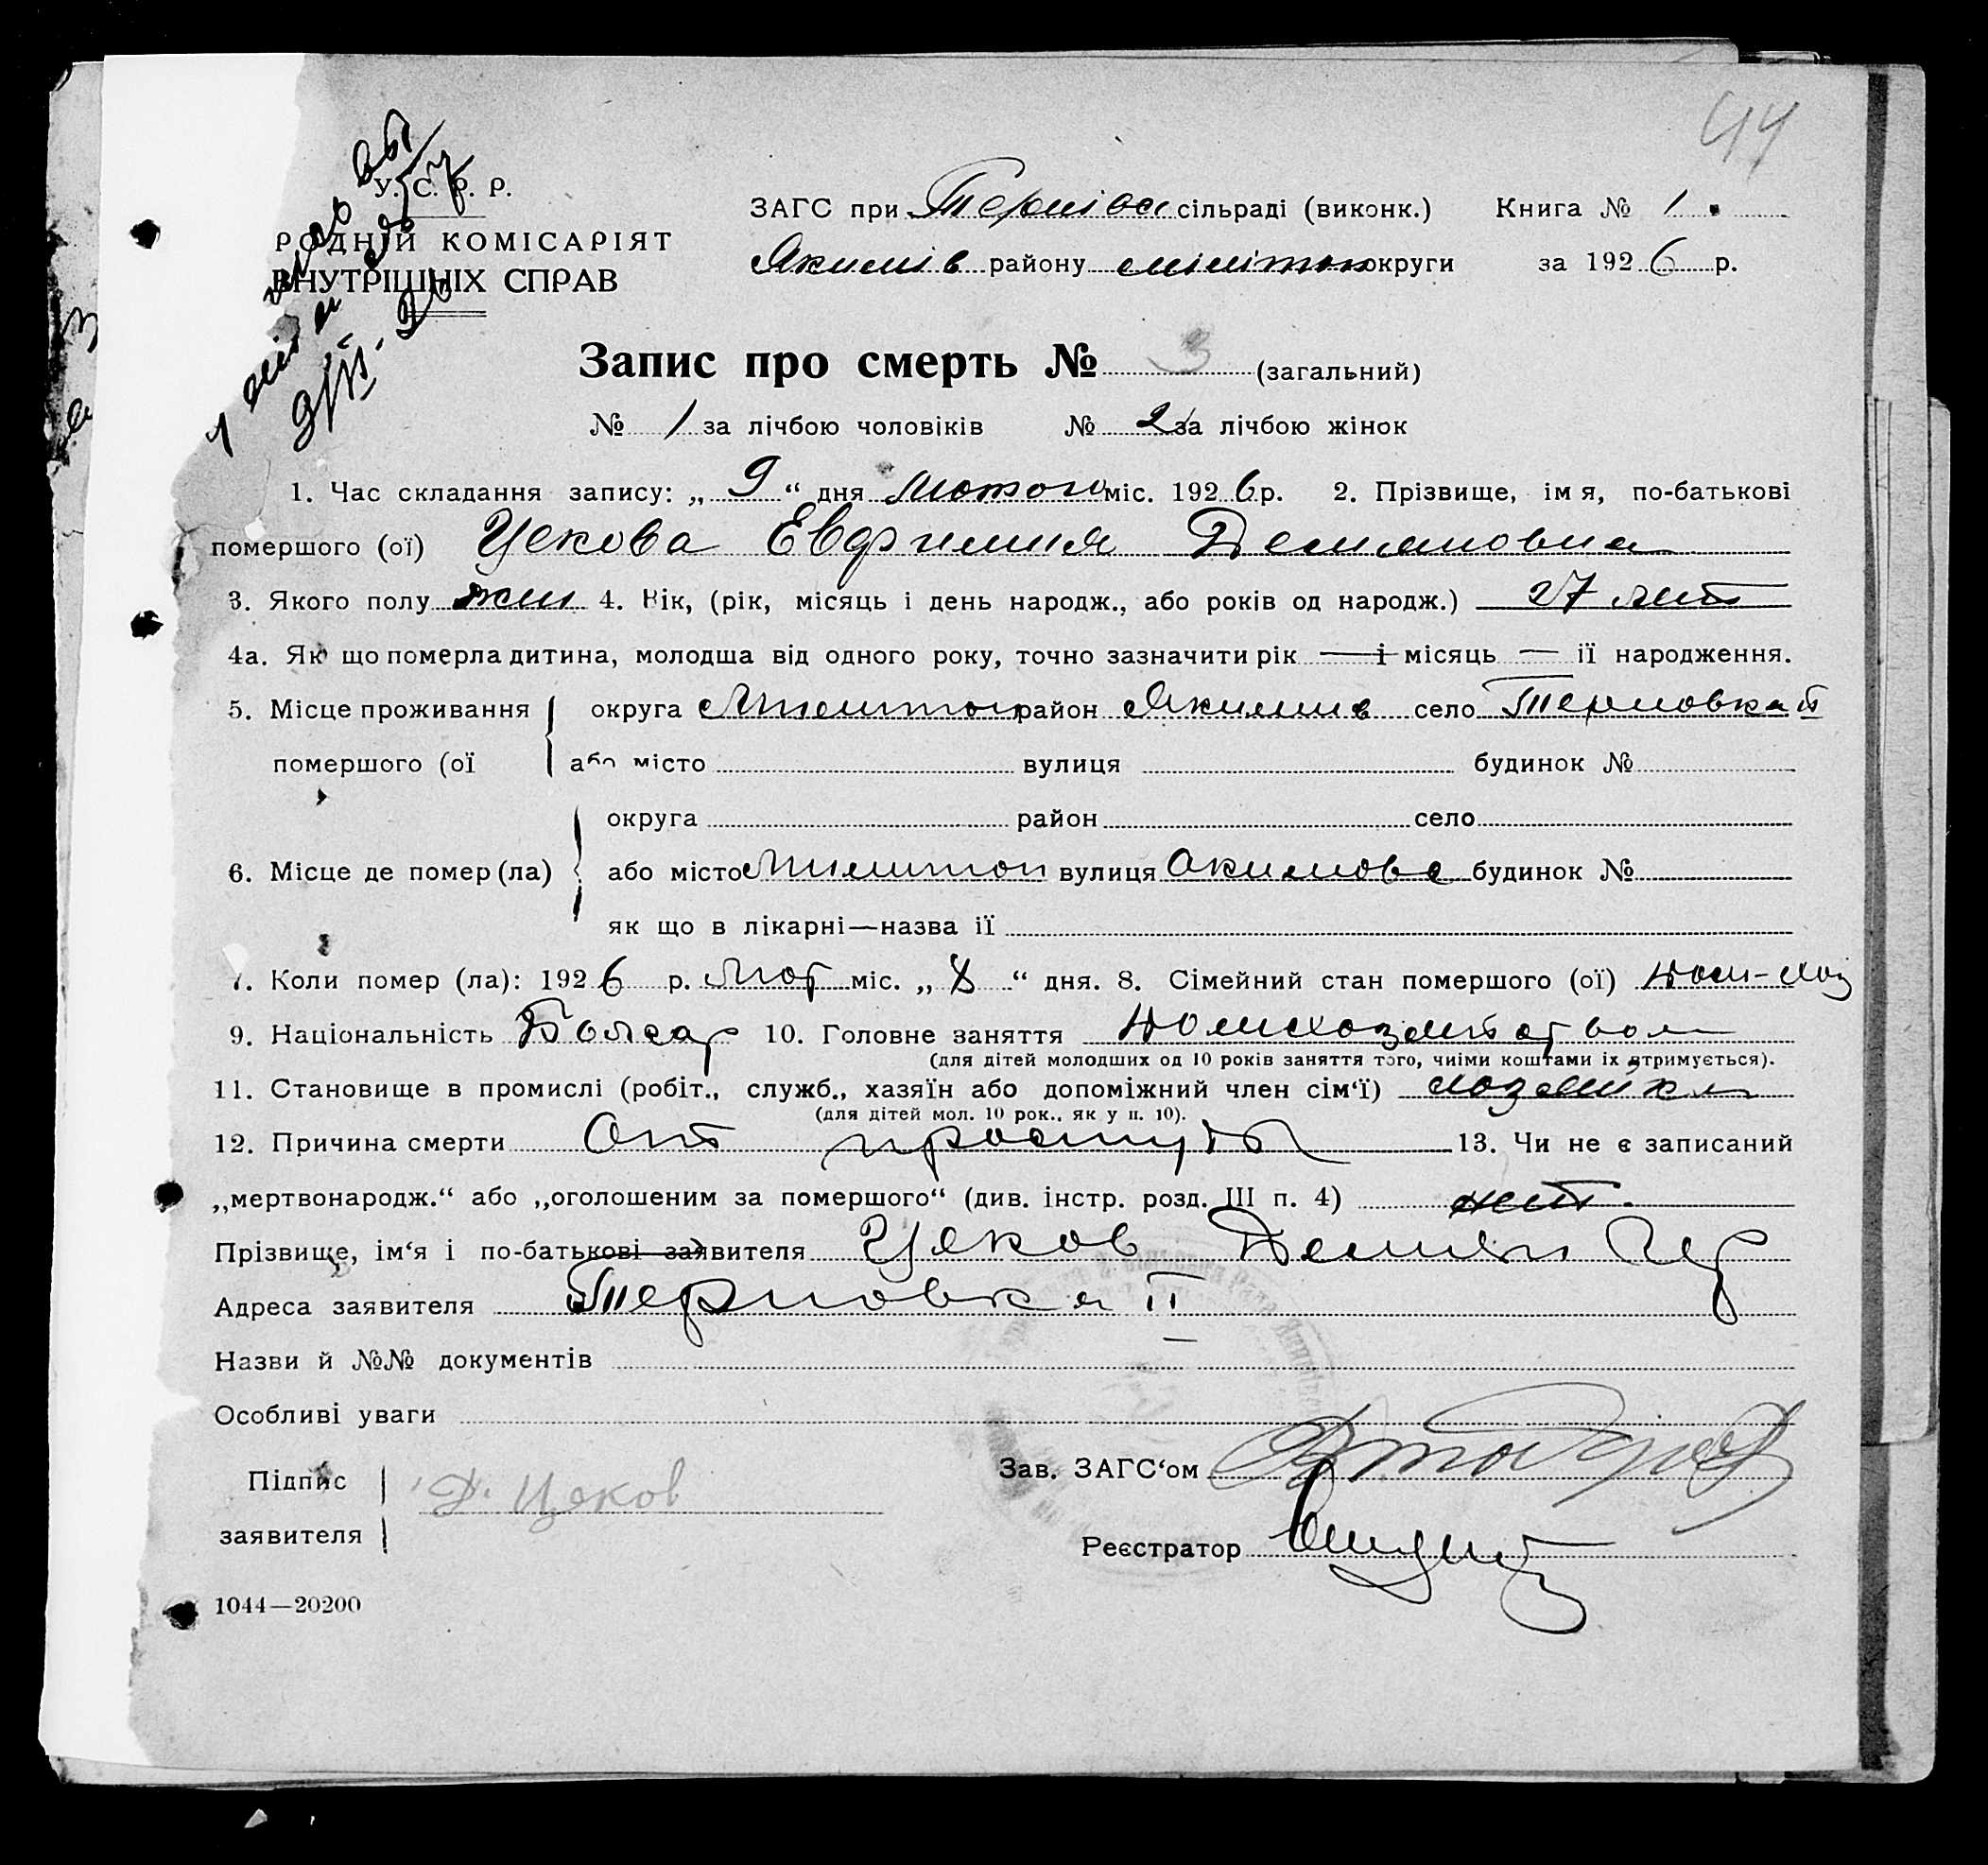 44
У. С. Р. Р.
РОДНІЙ КОМІСАРІЯТ
ВНУТРІШНІХ СПРАВ
ЗАГС при Тернівс сільраді (виконк.) Книга № 1
Якимів району мілітоп округи за 1926 р.
Запис про смерть № 3 (загальний)
№ 1 за лічбою чоловіків № 2 за лічбою жінок
1. Час складання запису: „ 9 “ дня Лютого міс. 1926 р. 2. Прізвище, ім я, по-батькові
помершого (ої) Цекова Евфимия Демяновна
3. Якого полу жен 4. Вік, (рік, місяць і день народж., або років од народж.) 27 лет
4а. Як що померла дитина, молодша від одного року, точно зазначити рік — і місяць — її народження.
5. Місце проживання округа Мелитоп район Якимив село Терновка II
помершого (ої або місто вулиця будинок №
округа район село
6. Місце де помер (ла) або місто Мелитоп вулиця Акимовс будинок №
як що в лікарні—назва її
7. Коли помер (ла): 1926 р. Лют міс. „ 8 “ дня. 8. Сімейний стан помершого (ої)
9. Національність Болгар 10. Головне заняття
(для дітей молодших од 10 років заняття того, чиїми коштами їх утримується).
11. Становище в промислі (робіт., служб., хазяїн або допоміжний член сім‘ї) хозяйка
(для дітей мол. 10 рок., як у п. 10).
12. Причина смерти От простуды 13. Чи не є записаний
„мертвонародж.“ або „оголошеним за помершого“ (див. інстр. розд. III п. 4) нет.
Прізвище, ім‘я і по-батькові заявителя Цеков Демян
Адреса заявителя Терновка II
Назви й №№ документів
Особливі уваги
Підпис
заявителя Д. Цеков
Зав. ЗАГС‘ом
Реєстратор
1044—20200